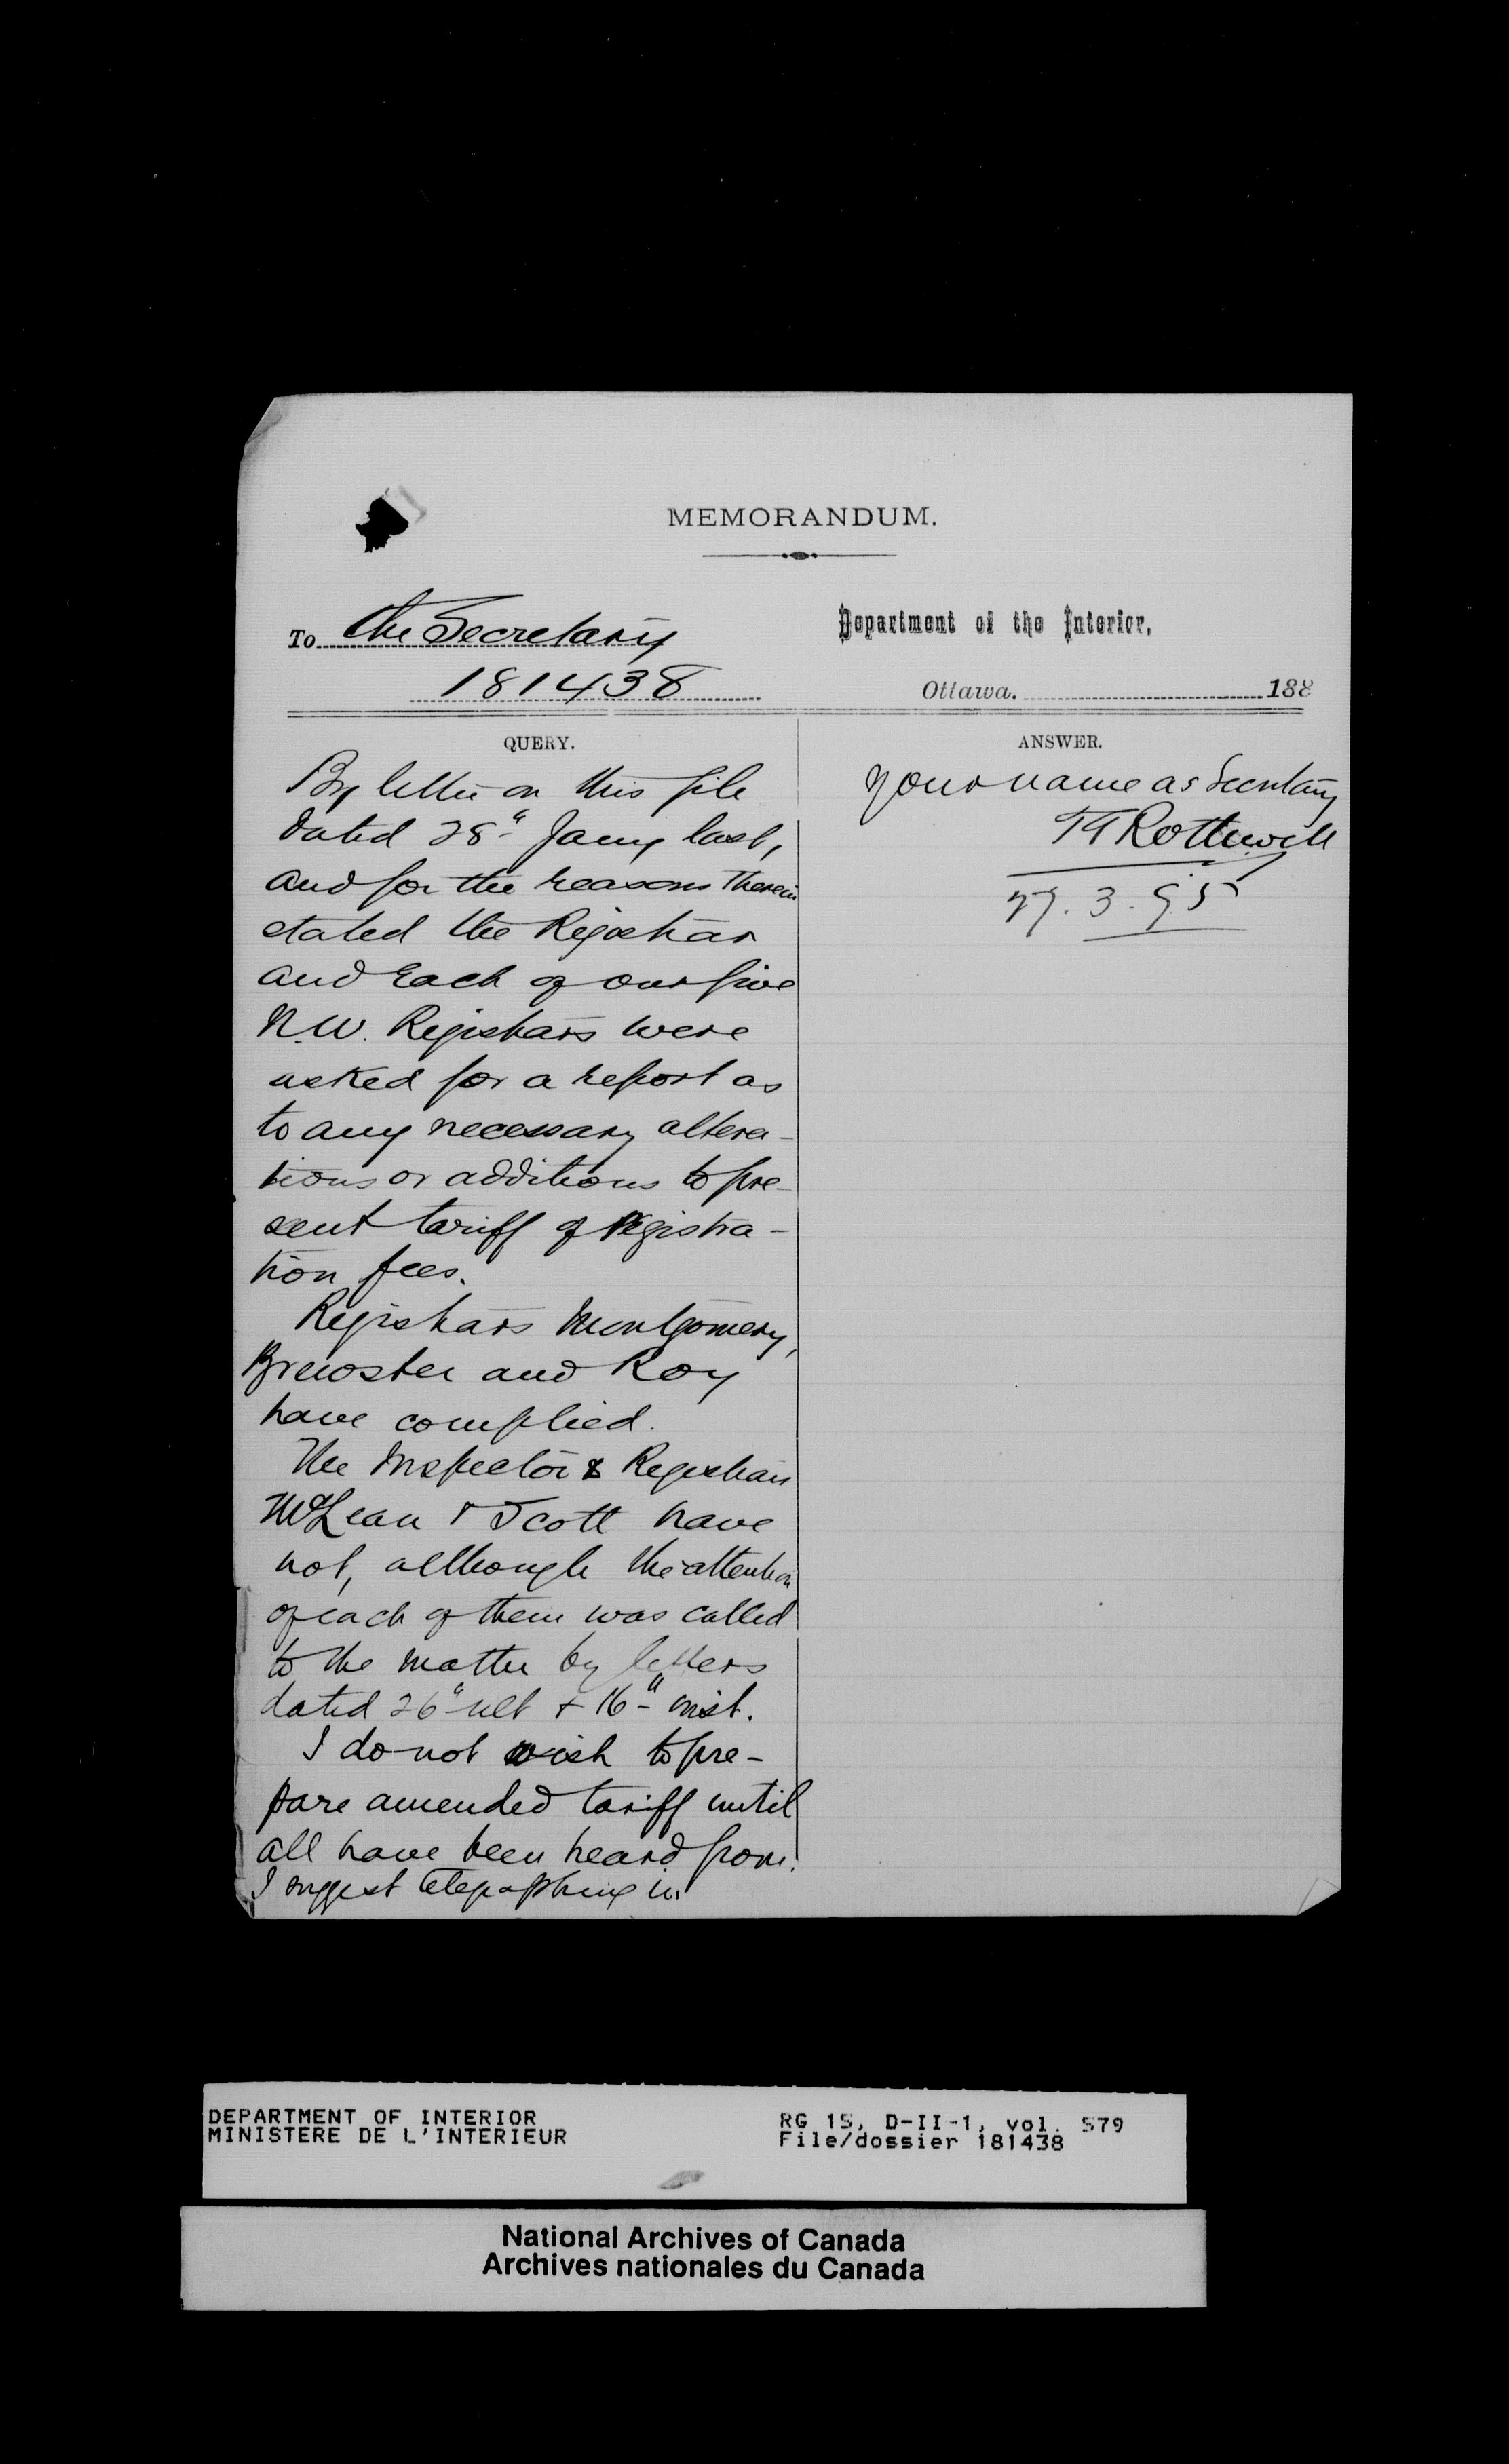 MEMORANDUM.
To The Secretary
181438
Department of the Interior,
Ottawa. 188
QUERY.
By letter on this file
dated 28" Jany last,
and for the reasons therein
stated the Registrar
and each of our five
N.W. Registrars were
asked for a report as
to any necessary altera-
tions or additions to pre-
sent tariff of registra-
tion fees.
Registrars Montgomery,
Brewster and Roy
have complied.
The Inspector & Registrars
McLean & Scott have
not, although the attention
of each of them was called
to the matter by letters
dated 26" ult & 16" inst.
I do not wish to pre-
pare amended tariff until
all have been heard from.
I suggest telegraphing in
ANSWER.
your name as Secretary
Rothwell
27.3.95
DEPARTMENT OF INTERIOR
MINISTERE DE L'INTERIEUR
RG 15, D-II-1, vol. 579
File/dossier 181438
National Archives of Canada
Archives nationales du Canada